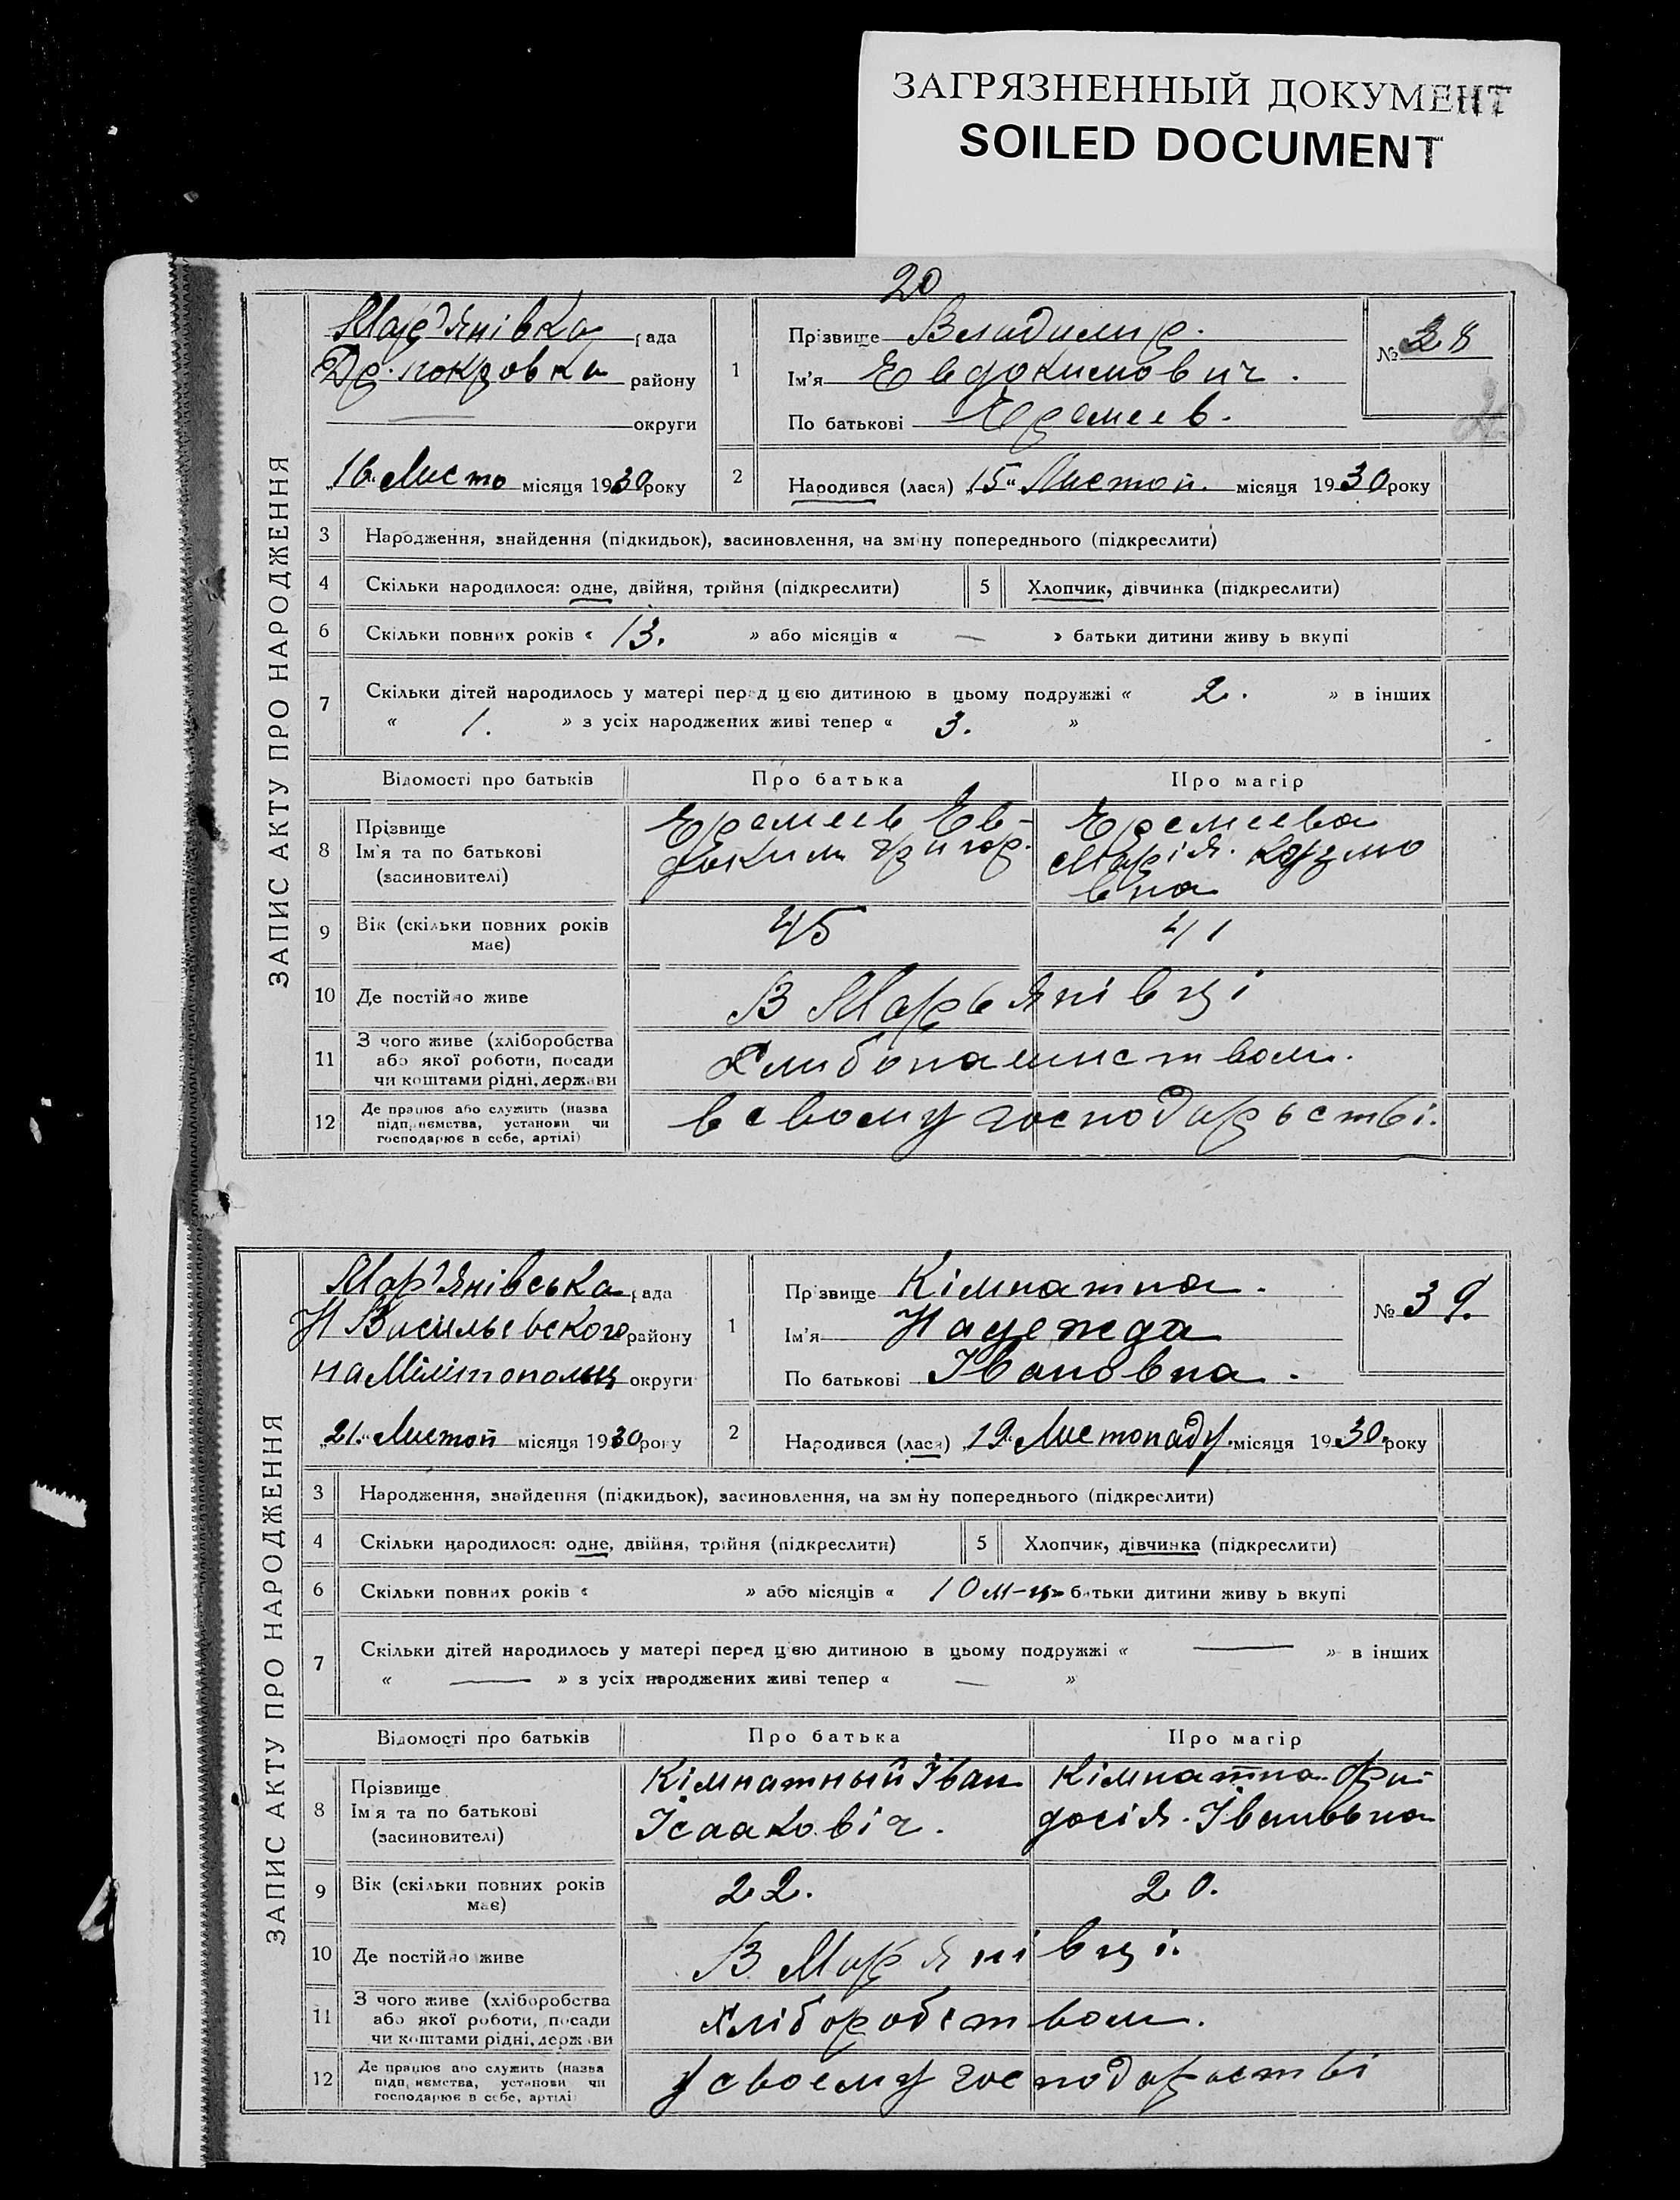 ЗАГРЯЗНЕННЫЙ ДОКУМЕНТ
SOILED DOCUMENT
20
ЗАПИС АКТУ ПРО НАРОДЖЕННЯ
Мар'янівка рада
район
округи
"16" Листо місяця 1930 року
1
Прізвище Владимир.
Ім'я Евдокимович.
По батькові Еремеев.
№ 38
2
Народився (лася) "15" Листоп. місяця 1930 року
3 Народження, знайдення (підкидьок), засиновлення, на зміну попереднього (підкреслити)
4 Скільки народилося: одне, двійня, трійня (підкреслити) 5 Хлопчик, дівчинка (підкреслити)
6 Скільки повних років « 13. » або місяців « — » батьки дитини живу ь вкупі
7 Скільки дітей народилось у матері перед цією дитиною в цьому подружжі « 2. » в інших
« 1. » з усіх народжених живі тепер « 3. »
Відомості про батьків Про батька Про матір
8 Прізвище Ім'я та по батькові (засиновителі)
Еремеев Ев-
доким Григор.
Еремеева
Марія. Кузмо
вна
9 Вік (скільки повних років має) 45 41
10 Де постійно живе В Марьянівці
11 З чого живе (хліборобства
або якої роботи, посади
чи коштами рідні, держави
Хлибопашиством.
12 Де працює або служить (назва
підприємства, установи чи
господарює в себе, артілі)
в свому господарьстві.
ЗАПИС АКТУ ПРО НАРОДЖЕННЯ
Мар'янівська рада
Н Васильєвского району
на Мелітопольщ округи
"21" Листоп місяця 1930 року
1
Прізвище Кімнатна.
Ім'я Надежда
По батькові Івановна.
№ 39.
2
Народився (лася) "19" Листопаду місяця 1930 року
3 Народження, знайдення (підкидьок), засиновлення, на зміну попереднього (підкреслити)
4 Скільки народилося: одне, двійня, трійня (підкреслити) 5 Хлопчик, дівчинка (підкреслити)
6 Скільки повних років « » або місяців « 10 м-ц » батьки дитини живу ь вкупі
7 Скільки дітей народилось у матері перед цією дитиною в цьому подружжі « — » в інших
« — » з усіх народжених живі тепер « — »
Відомості про батьків Про батька Про матір
8 Прізвище
Ім'я та по батькові
(засиновителі)
Кімнатный Іван
Ісаакович.
Кімнатна
Івановна
9 Вік (скільки повних років
має)
22. 20.
10 Де постійно живе В Марянівці.
11 З чого живе (хліборобства
або якої роботи, посади
чи коштами рідні, держави
Хліборобством.
12 Де працює або служить (назва
підприємства, установи чи
господарює в себе, артілі)
у своєму господарстві